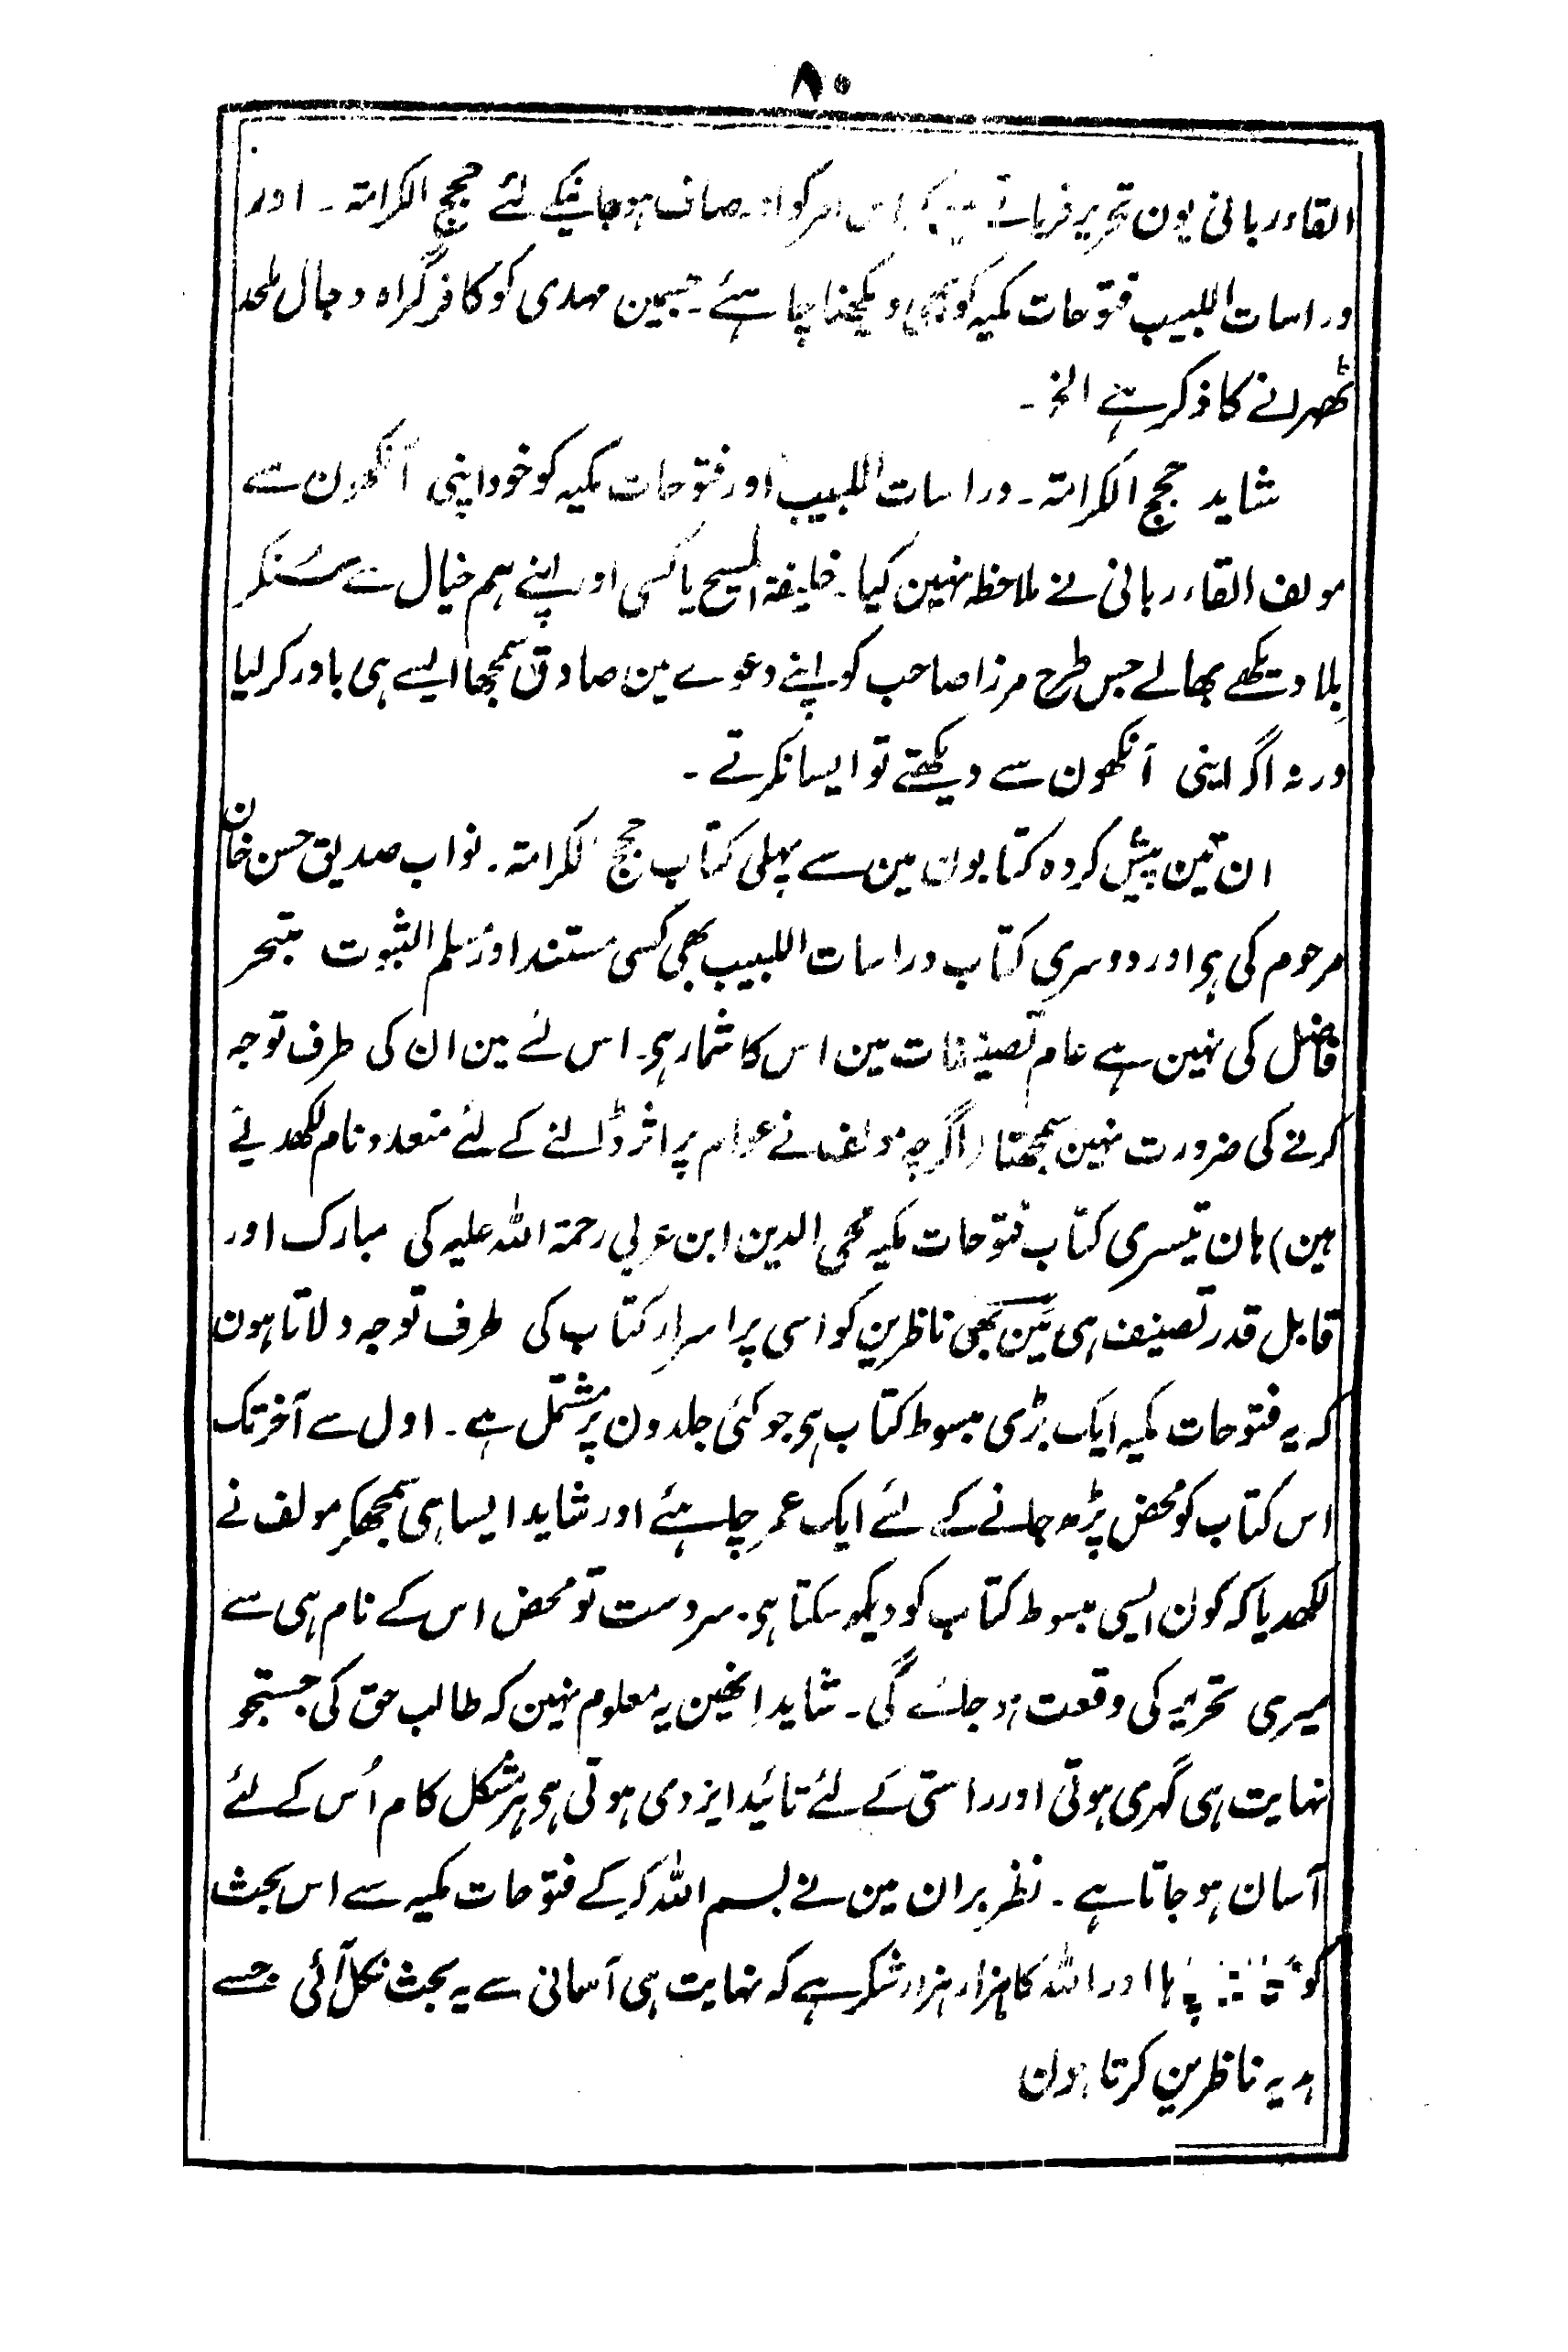 ۸۰
القاء ربانی یون تحریر فرماتے ہین کہ اس امر کو اور صاف ہو جانیکے لئے حجج الکرامتہ ۔ اور
دراسات اللبیب فتوحات مکیہ کو بھی دیکھنا چاہئے ۔ جسمین مہدی کو کافر گمراہ دجال ملحد
ٹھہرانے کا ذکر ہے الخ ۔
شاید حجج الکرامتہ ۔ دراسات اللبیب اور فتوحات مکیہ کو خود اپنی آنکھون سے
مولف القاء ربانی نے ملاحظہ نہین کیا ۔ خلیفۃ المسیح یا کسی اور اپنے ہم خیال سے سُنکر
بِلا دیکھے بھالے جس طرح مرزا صاحب کو اپنے دعوے مین صادق سمجھا ایسے ہی باور کر لیا
ورنہ اگر اپنی آنکھون سے دیکھتے تو ایسا نکرتے ۔
ان تین پیش کردہ کتابون مین سے پہلی کتاب حجج الکرامتہ ۔ نواب صدیق حسن خان
مرحوم کی ہی اور دوسری کتاب دراسات اللبیب بھی کسی مستند اور مُسلم الثبوت متبحر
فاضل کی نہین ہے عام تصنیفات مین اس کا شمار ہی ۔ اس لئے مین ان کی طرف توجہ
کرنے کی ضرورت نہین سمجھتا (اگرچہ مولف نے عوام پر اثر ڈالنے کے لئے متعدد نام لکھدیے
ہین) ہان تیسری کتاب فتوحات مکیہ محی الدین ابن عربی رحمۃ اللہ علیہ کی مبارک اور
قابل قدر تصنیف ہی مین بھی ناظرین کو اسی پر اسرار کتاب کی طرف توجہ دلاتا ہون
کہ یہ فتوحات مکیہ ایک بڑی مبسوط کتاب ہی جو کئی جلدون پر مشتمل ہے ۔ اول سے آخر تک
اس کتاب کو محض پڑھ جانے کے لئے ایک عمر چاہئے اور شاید ایسا ہی سمجھکر مولف نے
لکھدیا کہ کون ایسی مبسوط کتاب کو دیکھ سکتا ہی ۔ سردست تو محض اس کے نام ہی سے
میری تحریر کی وقعت ہو جائے گی ۔ شاید اِنھین یہ معلوم نہین کہ طالب حق کی جستجو
نہایت ہی گہری ہوتی اور راستی کے لئے تائید ایزدی ہوتی ہی ہر مشکل کام اُس کے لئے
آسان ہو جاتا ہے ۔ نظر بران مین نے بسم اللہ کرکے فتوحات مکیہ سے اس بحث
کو اور اللہ کا ہزار ہزار شکر ہے کہ نہایت ہی آسانی سے یہ بحث نکل آئی جسے
ہدیہ ناظرین کرتا ہون